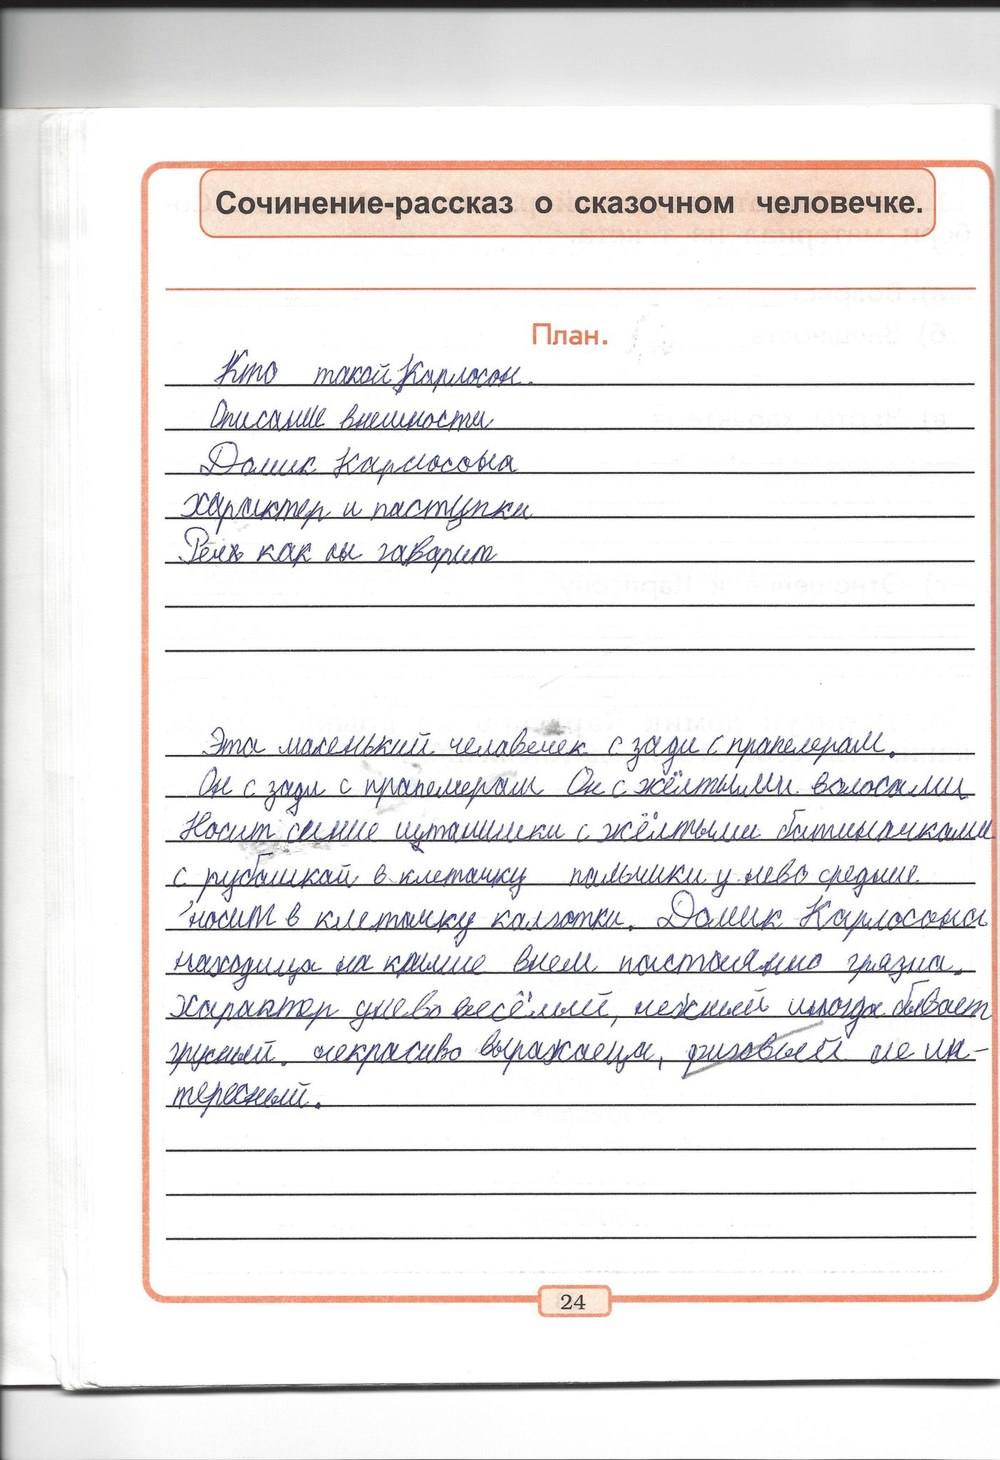 Сочинение-рассказ о сказочном человечке.
План.
Кто такой Карлосон.
Описание внешности
Домик Карлосона
характер и паступки
Речь как он гаварит
Эта маленький челавечек с зади с прапелерам.
Он с зади с прапелерам Он с жёлтыми воласами
Носит синие штанишки с жёлтыми батиначками
с рубашкай в клетачку пальчики у нево средние
носит в клетачку калготки. Домик Карлосона
находица на крише внем пастаянно грязна.
характер унево весёлый, нежный иногда бывает
грусный. некрасиво выражаеца, не ин-
тересный.
24